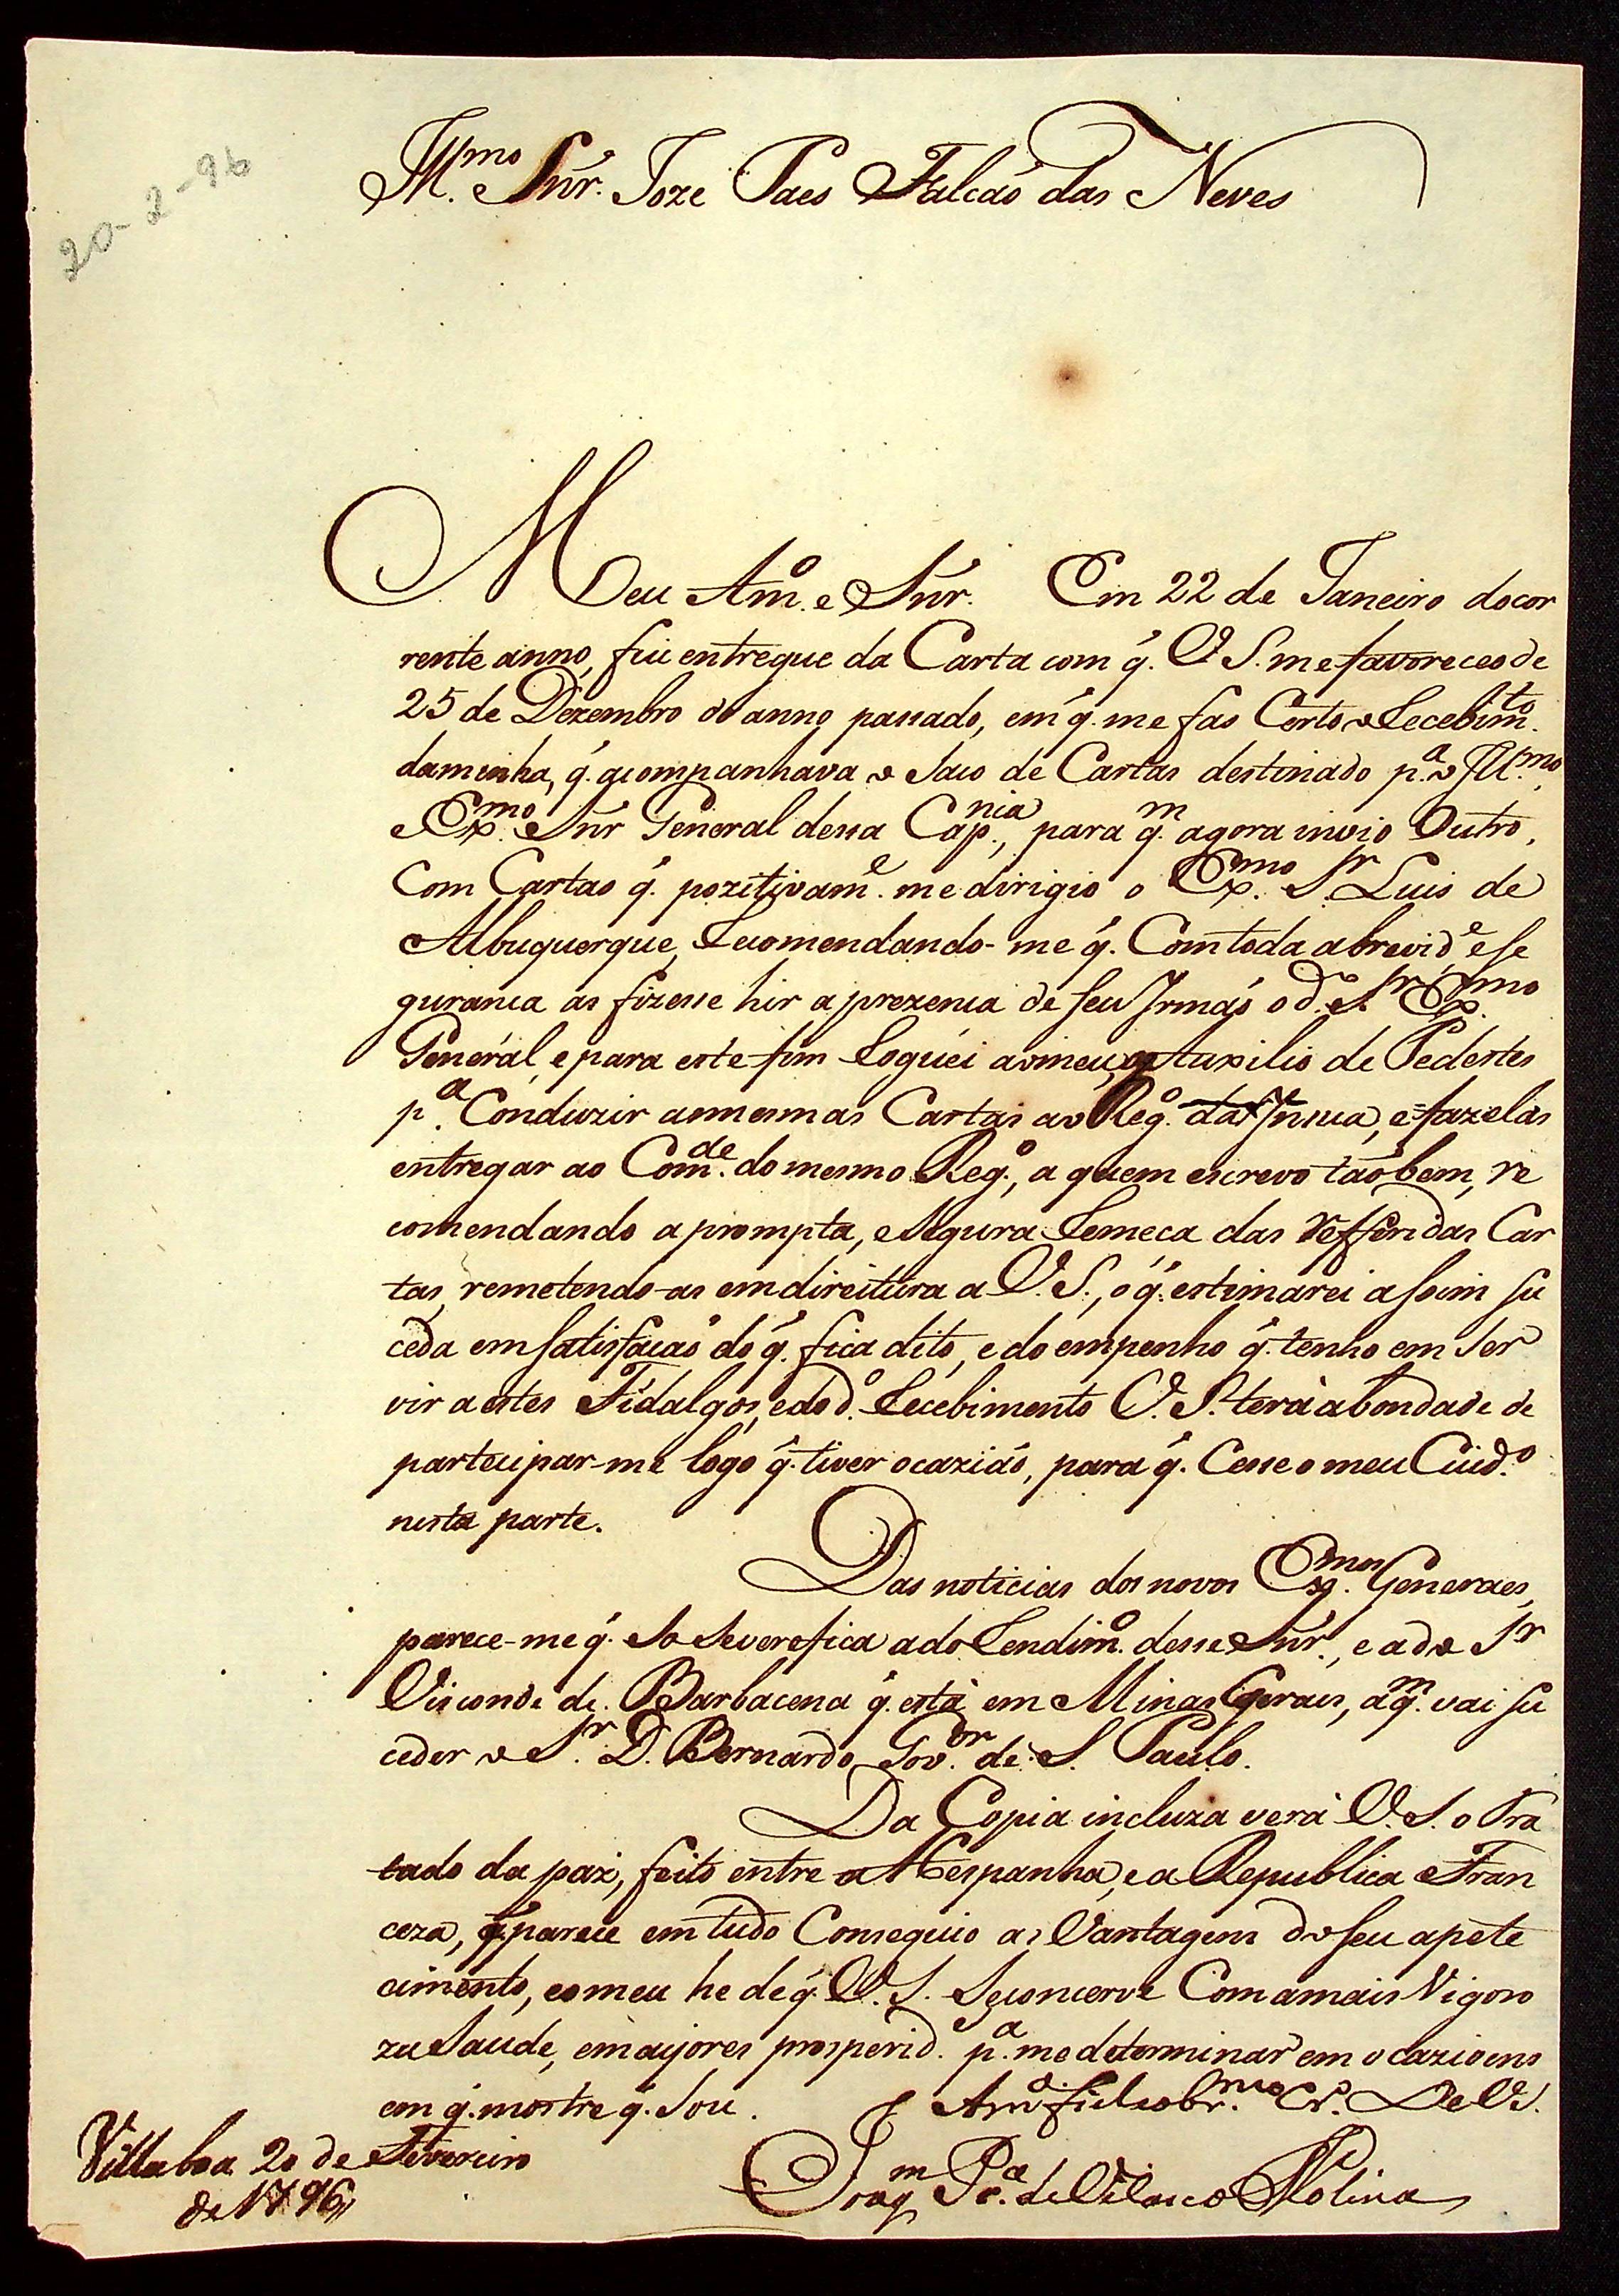 20-2-96
Ill.mo Snr. Joze Paes Falcaõ das Neves
Meu Am.o e Snr. Em 22 de Janeiro docor
rente anno, fui entregue da Carta com q. V S. me favoreceo de
25 de Dezembro do anno passado, em q. me fas Certo o Recebim.to
daminha, q. acompanhava o Saco de Cartas destinado p.a o Ill.mo,
e Ex.mo Snr General dessa Cap.nia, para q.m agora invio Outro,
Com Cartas q. pozitivam.e me dirigio o Ex.mo S.r Luis de
Albuquerque, Recomendando-me q. Comtoda abrevid.e e Se
gurança as fizesse hir a prezença de seu Irmaõ o d.o S.r Ex.mo
General, e para este fim Roguei ao meu, o Auxilio de Pedestes
p.a Conduzir asmesmas Cartas ao Reg.o da Insua, e fazelas
entregar ao Com.de do mesmo Reg.o, a quem escrevo taõbem, re
comendando a prompta, e Segura Remeça das refferidas Car
tas, remetendo-as emdireitura a V. S., o q. estimarei assim su
ceda emsatisfaçaõ do q. fica dito, e do empenho q. tenho em Ser
vir a estes Fidalgos, e do d.o Recebimento V. S. terá abondade de
participar-me logo q. tiver ocaziaõ, para q. Cesse o meu Cuid.o
nesta parte.
Das noticias dos novos Ex.mos Generaes,
parece-me q. So Severefica a do Rendim.o desse Snr., e a do S.r
Visconde de Barbacena q. está em Minas Gerais, a q.m vai su
ceder o S.r D. Bernardo Gov.or de S. Paulo.
Da Copia incluza verá V. S. o Tra
tado da paz, feito entre a Hespanha, e a Republica Fran
ceza, q. parece em tudo Conseguio as Vantagens do seu apete
cimento, eomeu he de q. V. S. Seconcerve Comamais Vigoro
za Saude, emayores prosperid. p.a me determinar em ocazioens
em q. mostre q. Sou. Am.o fiel e obr.mo Cr.o De V S.
Villa boa 20 de Fevereiro
de 1796
Joaq.m P.a de Velasco Molina